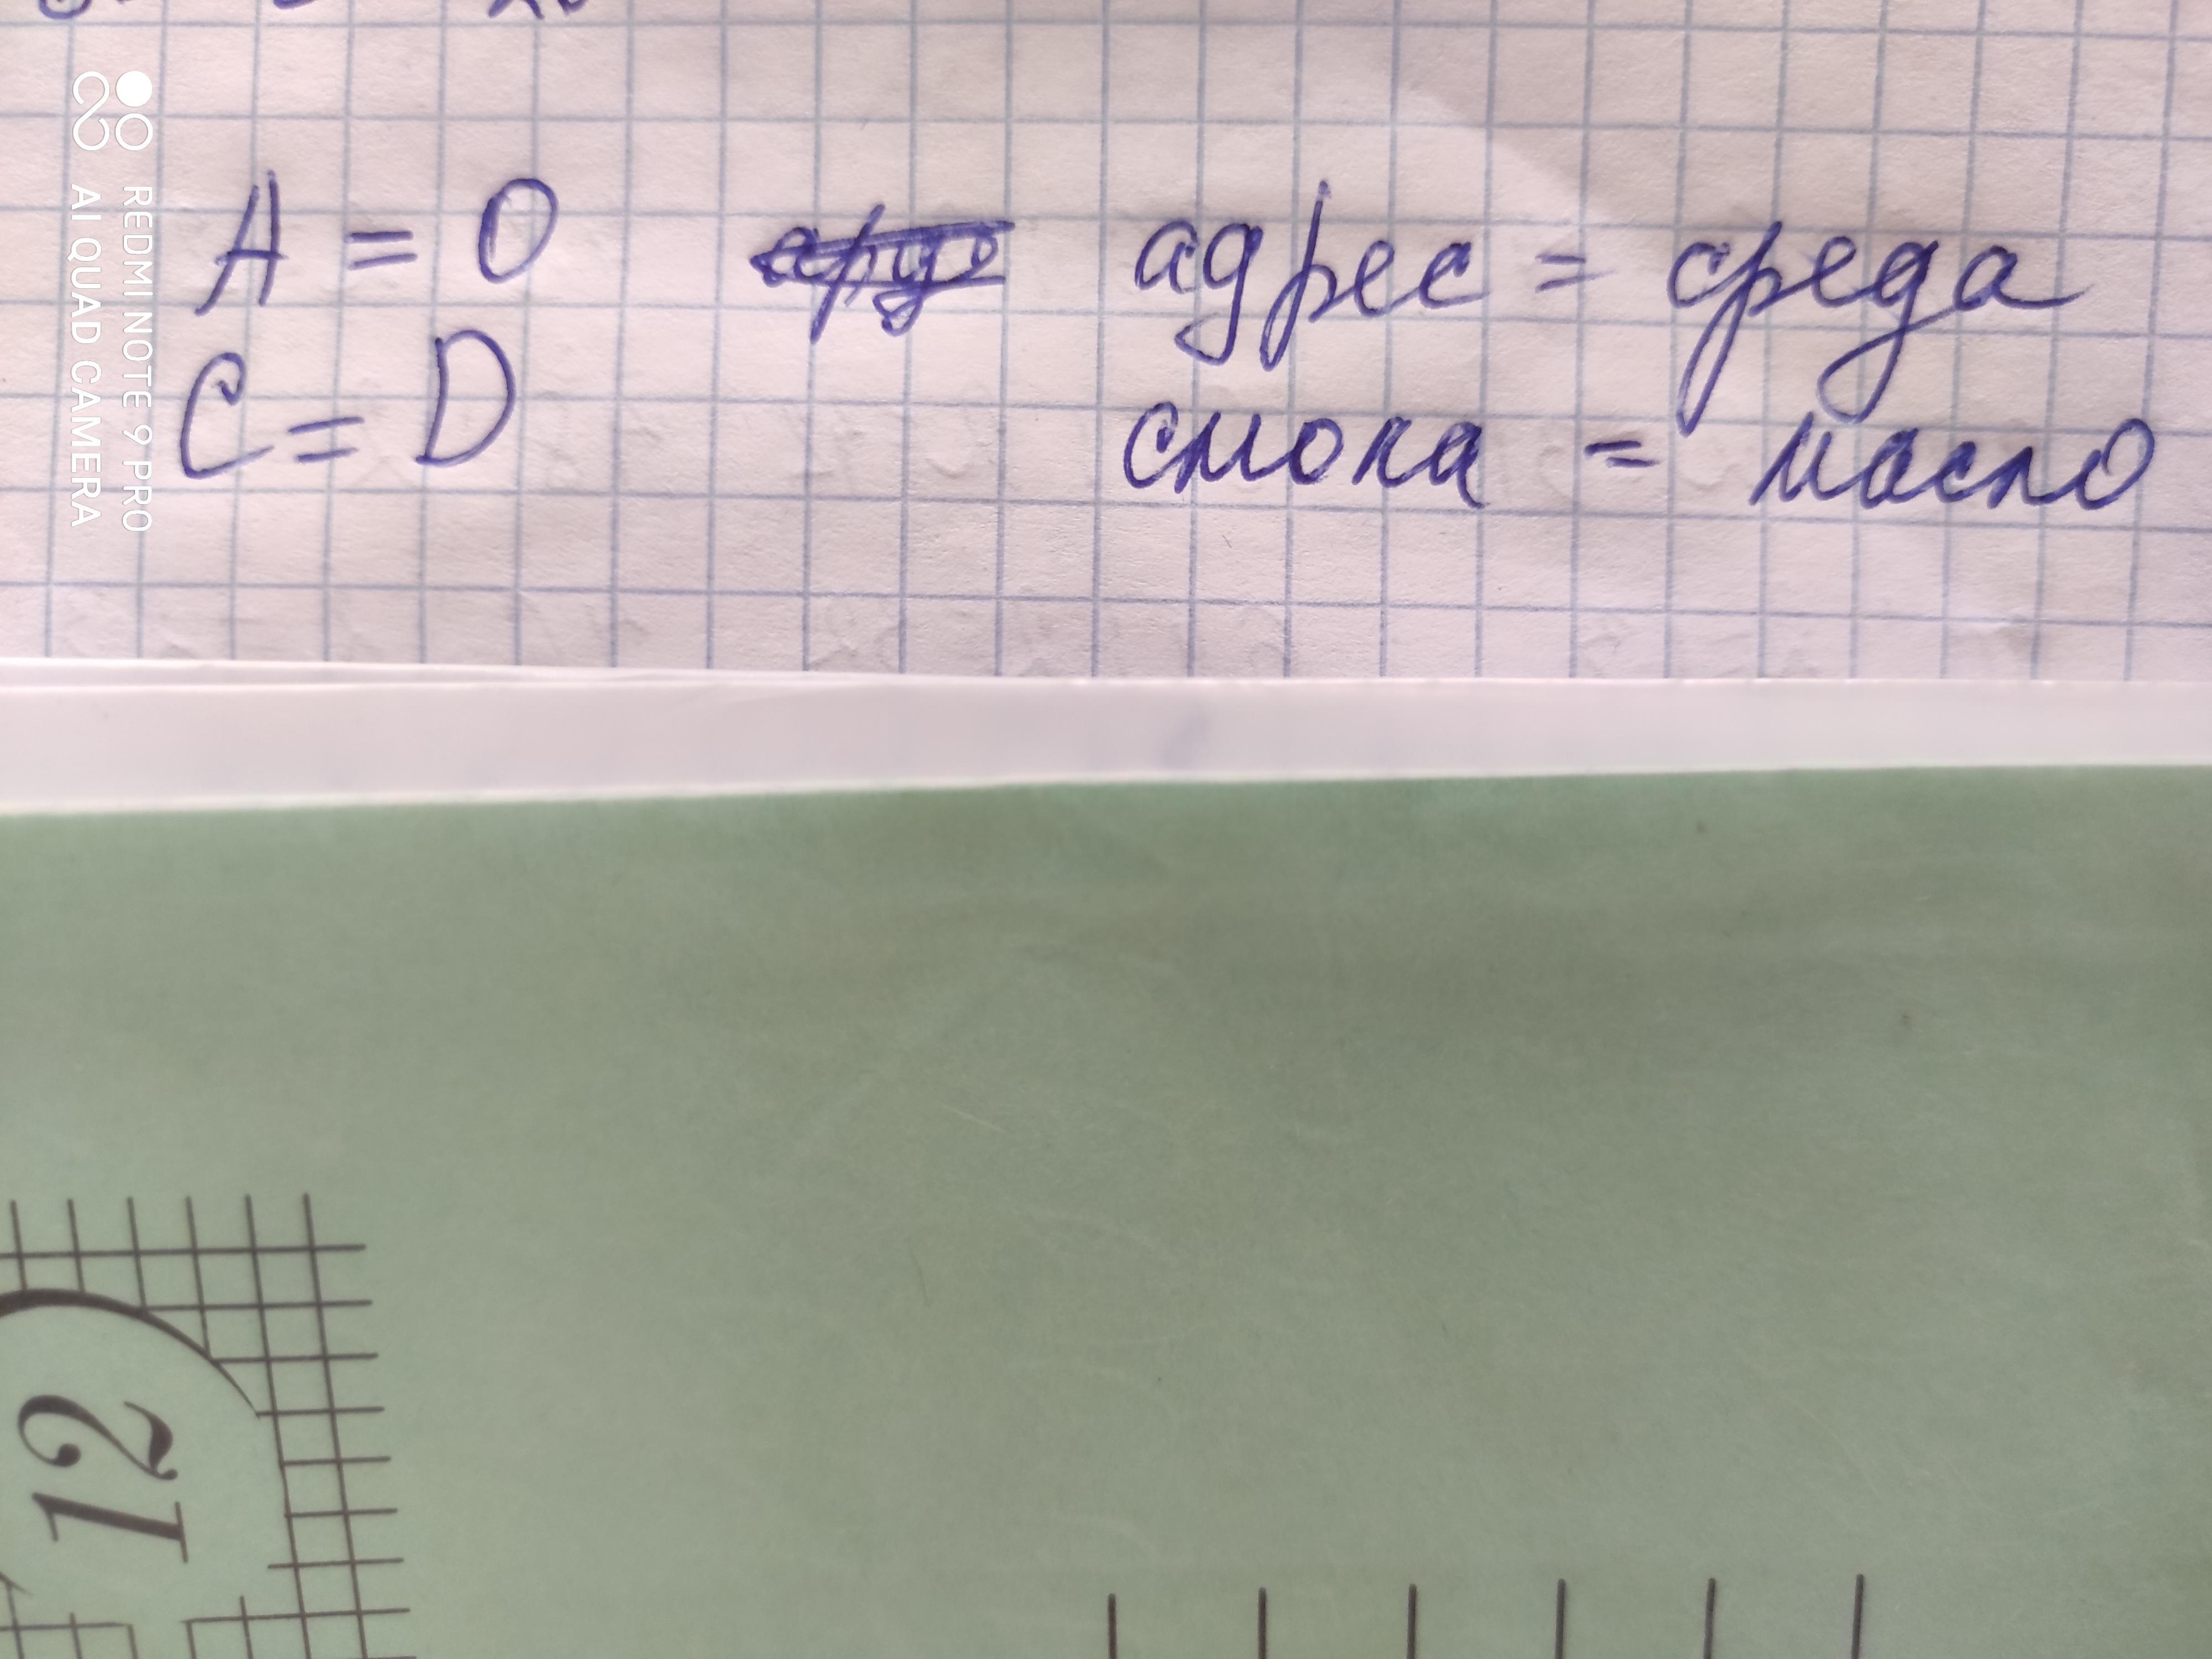 A = O адрес = среда
C = D смола = масло
REDMI NOTE 9 PRO
AI QUAD CAMERA
12